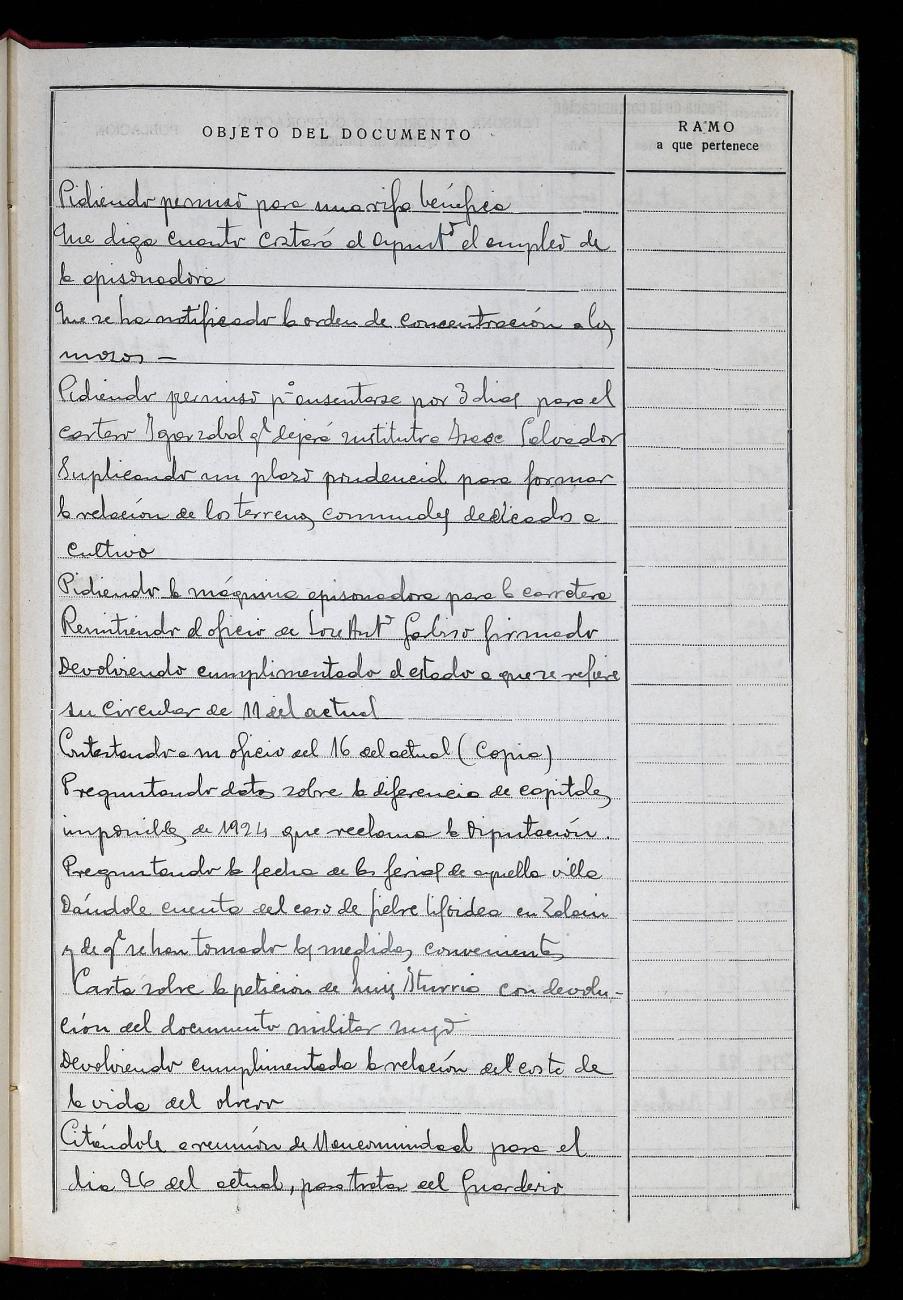 OBJETO DEL DOCUMENTO
RAMO
a que pertenece
Pidiendo permiso para una rifa benéfica
Que diga cuanto costará al Ayuntº el empleo de
la apisonadora
Que se ha notificado la orden de concentración a los
mozos —
Pidiendo permiso pª ausentarse por 3 dias para el
cartero Igarzabal qᵉ dejará sustituto a Isaac Salvador
Suplicando un plazo prudencial para formar
la relación de los terrenos comunales dedicados a
cultivo
Pidiendo la máquina apisonadora para la carretera
Remitiendo el oficio de José Antº firmado
Devolviendo cumplimentado el estado a que se refiere
su circular de 11 del actual
Contestando a su oficio del 16 del actual (Copia)
Preguntando datos sobre la diferencia de capitales
imponibles de 1924 que reclama la Diputación.
Preguntando la fecha de las ferias de aquella villa
Dándole cuenta del caso de fiebre tifoidea en Zalain
y de qᵉ se han tomado las medidas convenientes
Carta sobre la petición de Luis Iturria con devolu-
ción del documento militar suyo
Devolviendo cumplimentada la relación del coste de
la vida del obrero
Citándole a reunión de Mancomunidad para el
dia 26 del actual, para tratar del Guarderio